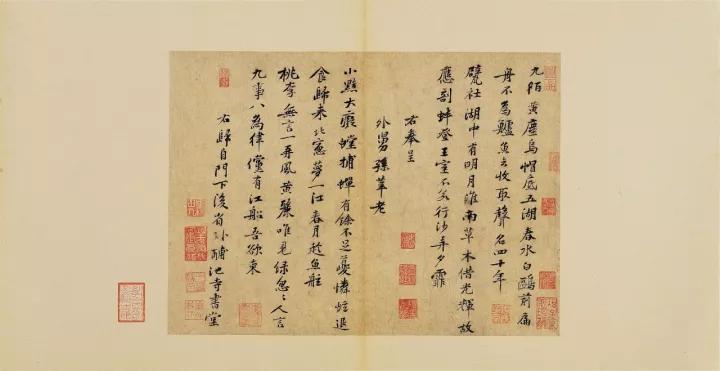 九陌黃塵烏帽底五湖春水白鷗前扁
舟不為鱸魚去收取聲名四十年
甓社湖中有明月淮南草木借光輝故
應剖蚌登王室不若行沙弄夕霏
右奉呈
外舅孫莘老
小黠大癡螳捕蟬有餘不足夔憐蚿退
食歸來北窻夢一江春月趁魚船
桃李無言一再風黃鸝唯見綠怱〻人言
九事八為律儻有江船吾欲東
右歸自門下後省卧酺池寺書堂